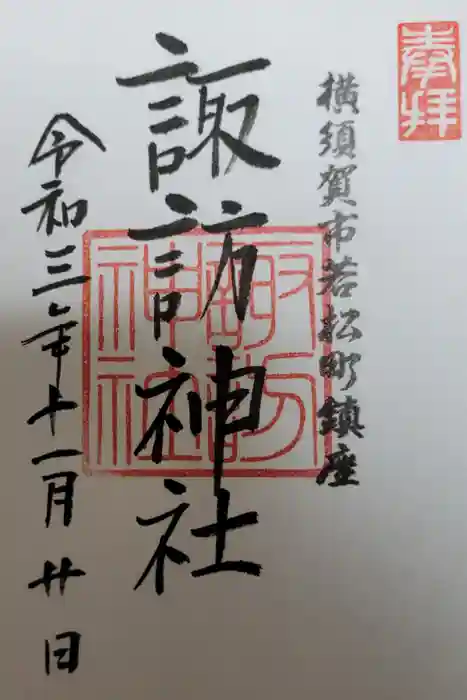 奉拝
横須賀市若松町鎮座
諏訪神社
諏訪
神社
令和三年十一月廿日